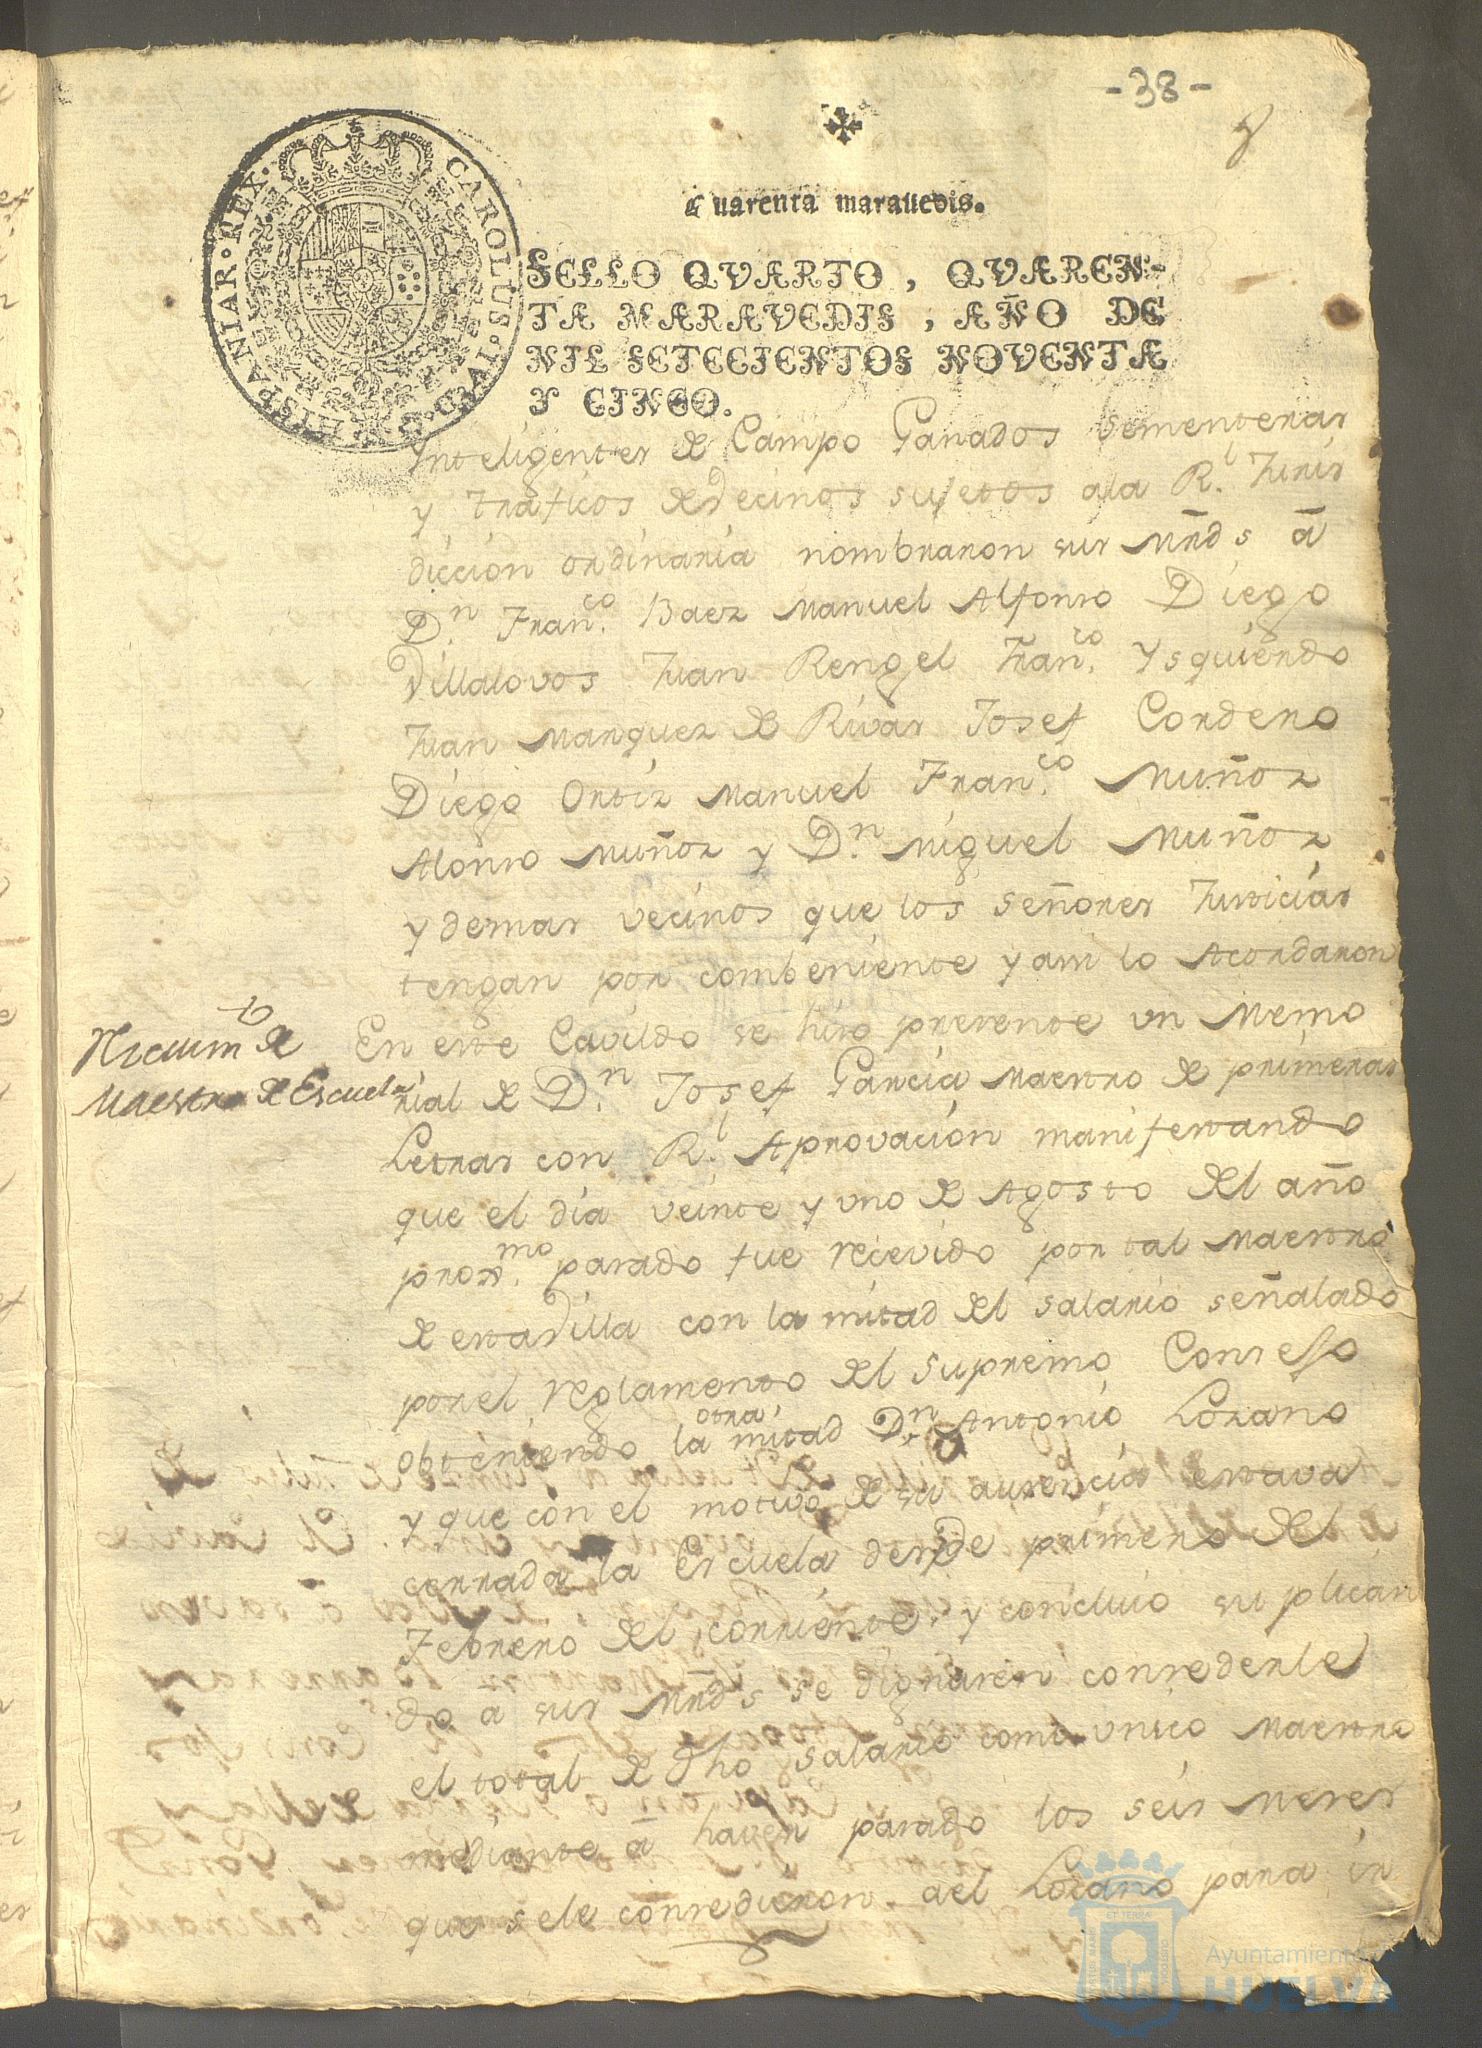 -38-
CAROLUS · IV · D · G · HISPANIAR · REX ·
Quarenta marauedis.
SELLO QVARTO, QVAREN-
TA MARAVEDIS, AÑO DE
MIL SETECIENTOS NOVENTA
Y CINCO.
Inteligentes de Campo Ganados Sementeras
y traficos de Vecinos sujetos a la Rl. Juris
diccion ordinaria nombraron sus Mrds à
Dn. Franco. Baez Manuel Alfonso Diego
Villalovos Juan Rengel Franco. Ysquierdo
Juan Marquez de Rivas Josef Cordero
Diego Ortiz Manuel Franco. Muñoz
Alonso Muñoz y Dn. Miguel Muñoz
y demas vecinos que los señores Justicias
tengan por combeniente y asi lo Acordaron
Nicuimto de
Maestro de Escuela
En este Cavildo se hizo presente un Memo
rial de Dn. Josef Garcia Maestro de primeras
Letras con Rl. Aprovacion manifestando
que el dia veinte y uno de Agosto del año
proxmo. pasado fue recevido por tal Maestro
de esta Villa con la mitad del salario señalado
por el reglamento del Supremo Consejo
obteniendo la otra mitad Dn. Antonio Lozano
y que con el motivo de su ausencia estava
cerrada la Escuela desde primero del
Febrero del corriente, y concluio suplican
do a sus Mrds se dignasen consederle
el total de dho salario como unico Maestro
mediante à haver pasado los seis Meses
que se le consedieron al Lozano para in
Ayuntamiento
HUELVA